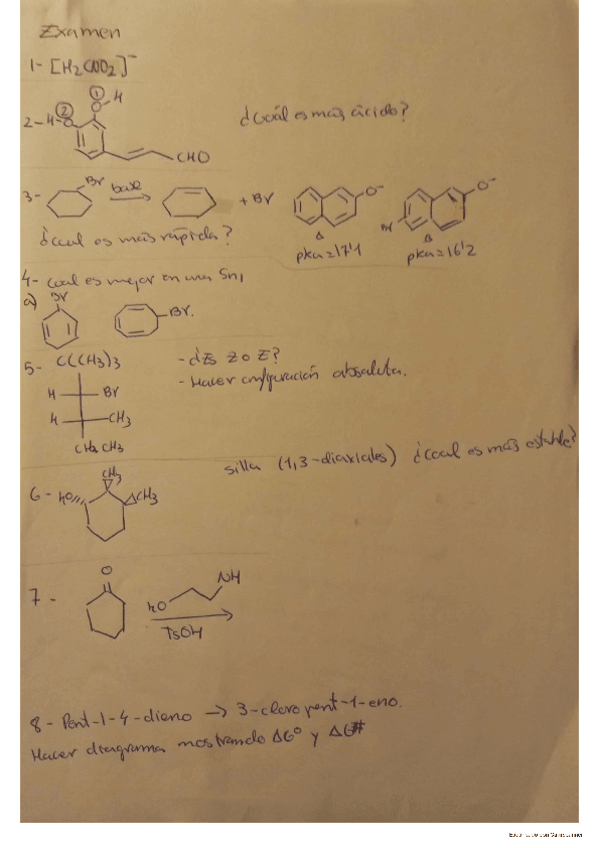 Examen
1- [H₂CNO₂]⁻
2- H-O ② ① O H ¿Cuál es más ácido?
CHO
3- Br base + Br O⁻ Br O⁻
A B
¿cual es más rápida? pka = 17'1 pka = 16'2
4- cual es mejor en una Sn₁
a) Br Br
5- C((CH₃)₃ - ¿Es Z o E?
- Hacer configuración absoluta.
H Br
H CH₃
CH₂CH₃
silla (1,3-diaxiales) ¿cual es más estable?
6- HO CH₃ CH₃
7- O HO NH
TsOH
8- Pent-1-4-dieno → 3-cloropent-1-eno.
Hacer diagrama mostrando ΔG° y ΔG#